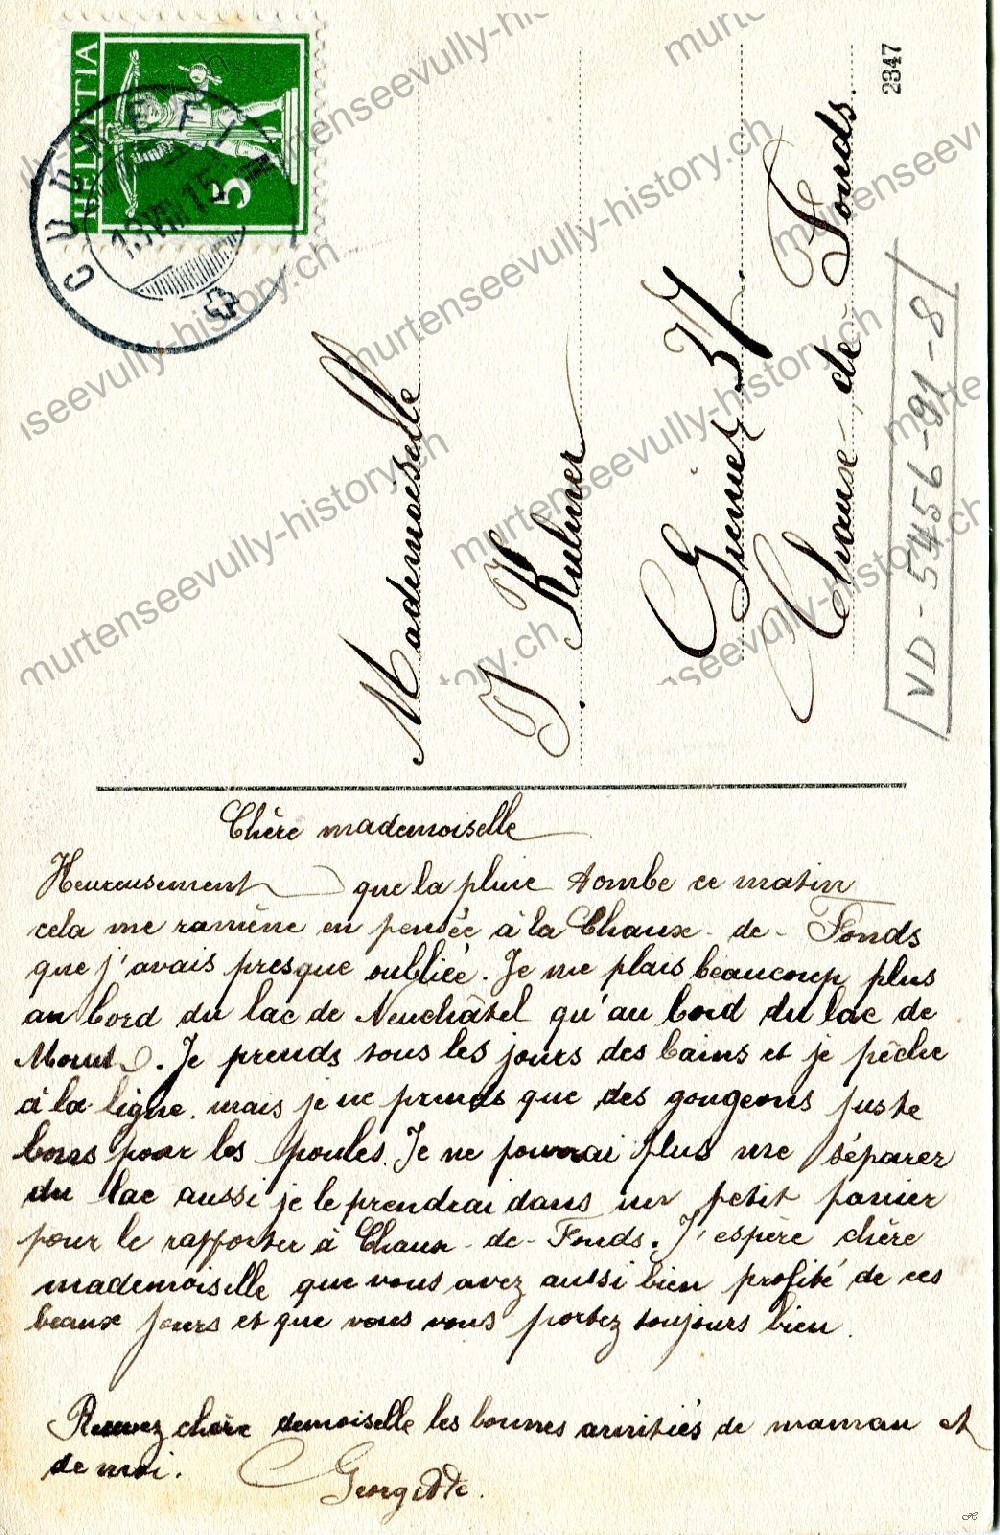 HELVETIA
5
CUDREFIN
13 VIII 15
2347
Mademoiselle
J. Kulmer
Grenier 37.
Chaux-de-Fonds.
VD-5456-91-8
Chère mademoiselle
Heureusement que la pluie tombe ce matin
cela me ramène en pensée à la Chaux-de-Fonds
que j'avais presque oubliée. Je me plais beaucoup plus
au bord du lac de Neuchâtel qu'au bord du lac de
Morat. Je prends tous les jours des bains et je pêche
à la ligne mais je ne prends que des gougeons juste
bons pour les poules. Je ne pourrai plus me séparer
du lac aussi je le prendrai dans un petit panier
pour le rapporter à Chaux-de-Fonds. J'espère chère
mademoiselle que vous avez aussi bien profité de ces
beaux jours et que vous vous portez toujours bien.
Recevez chère demoiselle les bonnes amitiés de maman et
de moi.
Georgette.
murtenseevully-history.ch